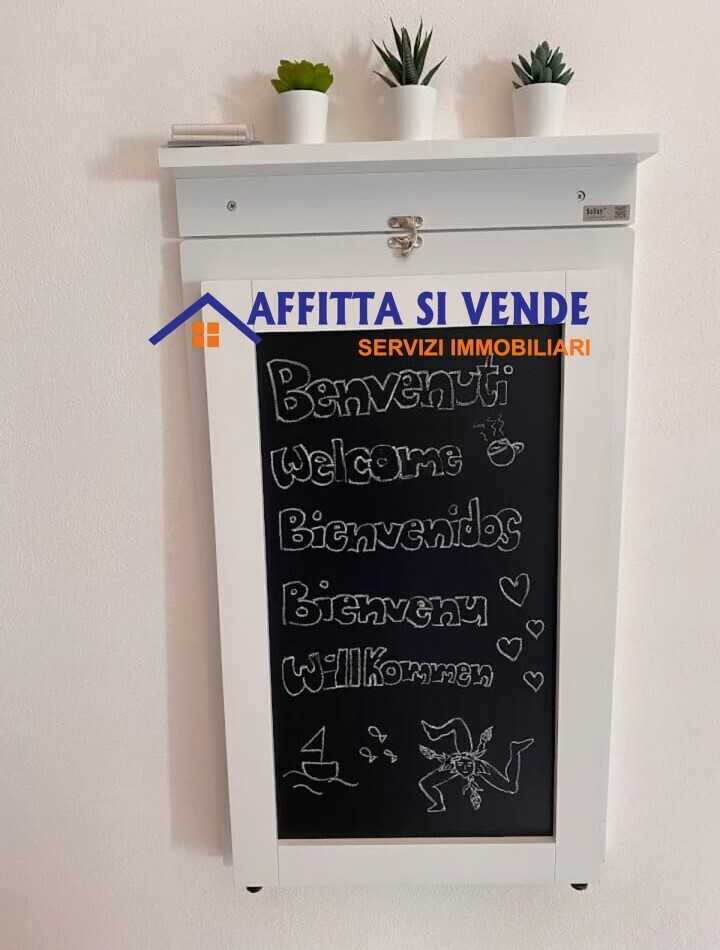 AFFITTA SI VENDE
SERVIZI IMMOBILIARI
Benvenuti
Welcome
Bienvenidos
Bienvenu
Willkommen